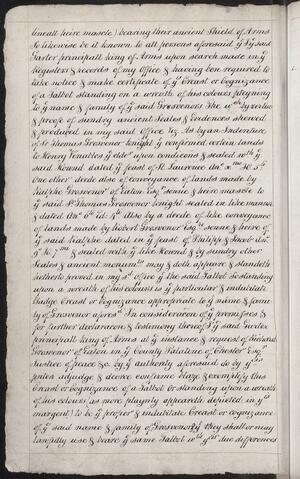 lineall heire mascle) bearing their ancient Shield of Arms
So likewise be it known to all persons aforesaid yt I ye said
Garter principall king of Arms upon search made in ye
Registers & records of my Office & having ben required to
take notice & make certificate of ye Creast or cognizance
of a Talbot standing on a wreath of his colours pteyning
to ye name & family of ye said Grosvenors The wch by vertue
& proofe of sundry ancient Seales & evidences shewed
& produced in my said Office viz. As by an Indenture
of Sr Thomas Grosvenor knight yt confirmed certain lands
to Henry Venables ye elder upon condicons & sealed wth ye
said Hound dated ye feast of St Laurence
One other deede also of conveyance of lands made by
Raliphe Grosvenor of Eaton Esqr sonne & heire mascle to
ye said Sr Thomas Grosvenor knight sealed in like manner
& dated Also by a deede of like conveyance
of lands made by Robert Grosvenor Esqre sonne & heire of
ye said Raliphe dated in ye feast of Philippe & Jacob
& sealed with ye like Hound & by sundry other
Seales & ancient monumts may & doth appeare & standeth
netherto proved in my sd office yt the said Talbot so standing
upon a wreath of his colours is ye particular & indubitate
badge Creast or cognizance appropriate to ye name & fami-
ly of Grosvenor aforesd In consideracon of ye premisses &
for further declaracon & testimony thereof I ye said Garter
principall king of Arms at ye instance & request of Richard
Grosvenor of Eaton in ye County Palatine of Chester Esqr
Justice of peace &c. by ye authority aforesaid do by ye
pntes adjudge & decree confirme blaze & exemplify this
Creast or cognizance of a Talbot standing upon a wreath
of his colours as more playnly appeareth depicted in ye
margent) to be ye proper & indubitate Creast or cognizance
of ye said name & family of Grosvenor yt they shall or may
lawfully use & beare ye same Talbot wth yeir due differences